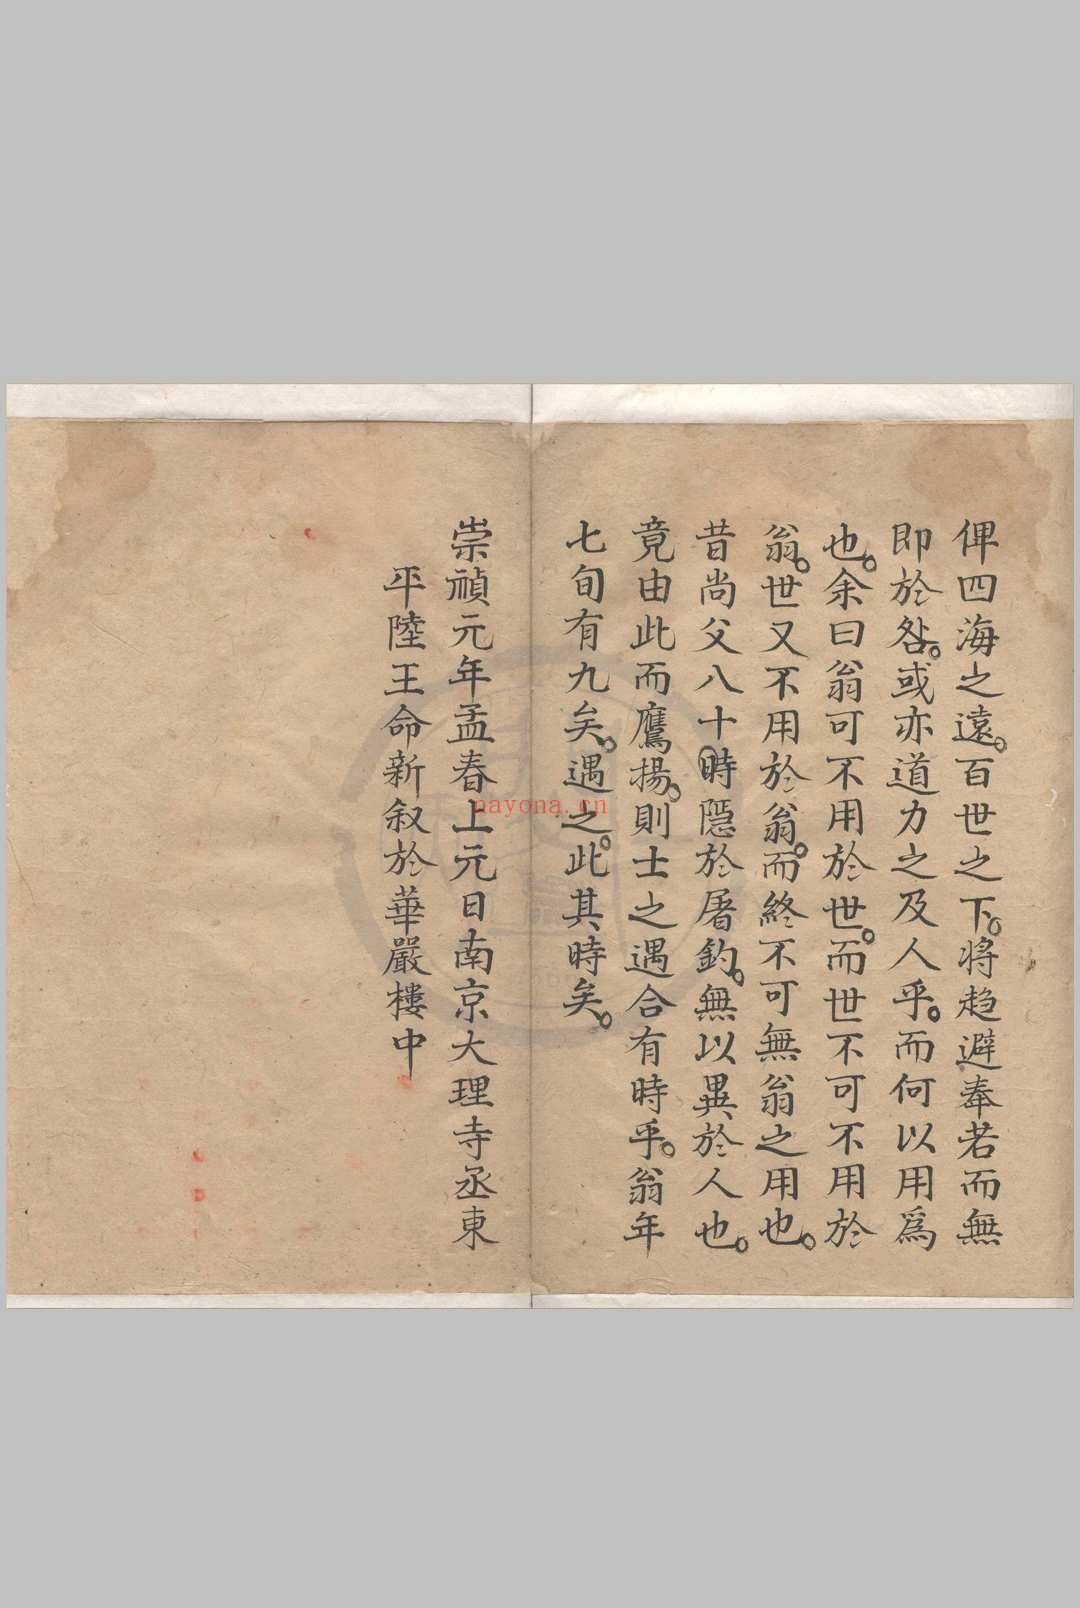 俾四海之遠。百世之下。将趋避奉若而無
即於咎。或亦道力之及人乎。而何以用爲
也。余曰翁可不用於世。而世不可不用於
翁。世又不用於翁。而終不可無翁之用也。
昔尚父八十時隱於屠釣。無以異於人也。
竟由此而鷹揚。則士之遇合有時乎。翁年
七旬有九矣。遇之。此其時矣。
崇禎元年孟春上元日南京大理寺丞東
平陸王命新叙於華嚴樓中
nayona.cn